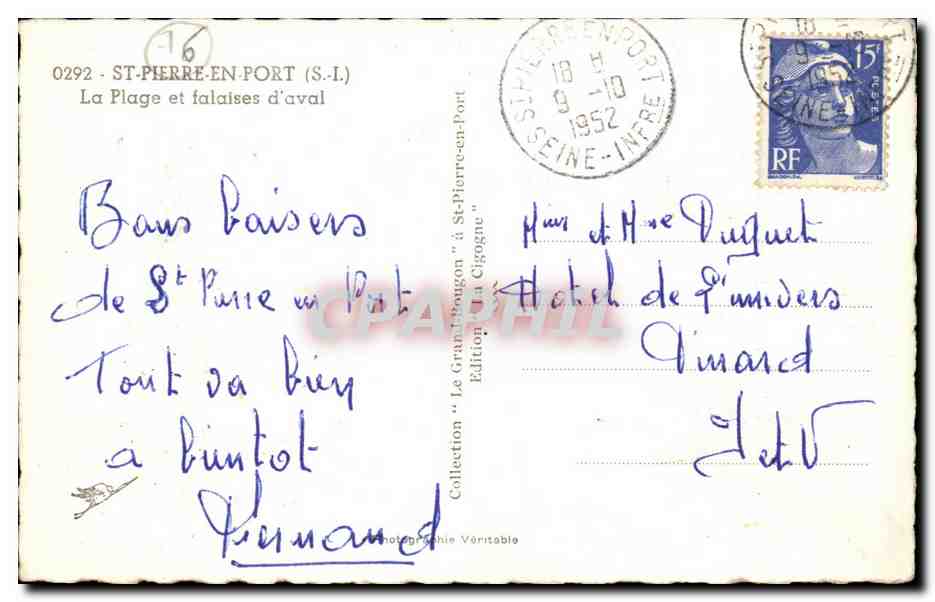 16
0292 - ST-PIERRE-EN-PORT (S.-I.)
La Plage et falaises d'aval
Bons baisers
de St Pierre en Port
Tout va bien
a bientot
Fernand
Photographie Véritable
Collection " Le Grand Bougon " à St-Pierre-en-Port
Edition " La Cigogne "
ST PIERRE EN PORT
18 H
9 - 10
1952
SEINE-INFRE
18 H
9
1952
SEINE
15F
POSTES
RF
Mme Duguet
Hotel de l'univers
Dinard
I et V
CPAPHIL